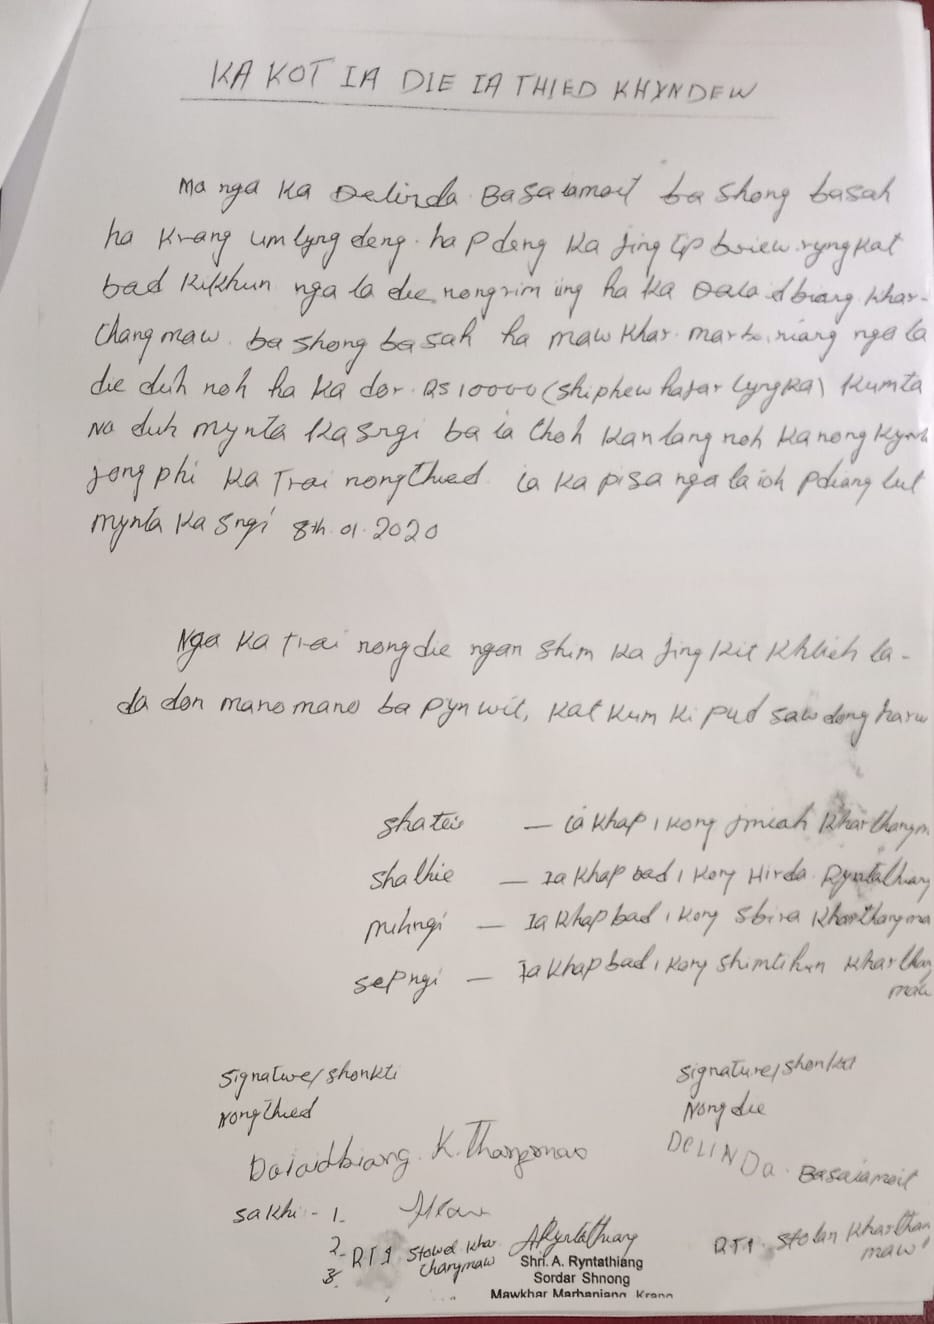 KA KOT IA DIE IA THIED KHYNDEW
Ma nga Ka Delinda Basaiamoit ba shong basah
ha Krang umlyng deng. ha pdeng Ka Jing ip briew ryngkat
bad KiKhun nga la die nongrim iing ha ka Dala d biang Khar-
Changmaw. ba shong ba sah ha maw Khar. nga la
die duh noh ha Ka dor. Rs 10000 (shiphew hajar lyngka) Kumta
No duh mynta Ka sngi ba la thoh Kan lang noh Ka nong
jong phi Ka Trai nongthied. ia Ka pisa nga la ioh pdiang lut
mynta Ka sngi 8th. 01. 2020
Nga Ka trai nongdie ngan shim Ka Jing Kit Khlieh la-
da don mano mano ba pyn wit, Kat Kum Ki pud sawdong harum
shatei — ia Khap, Kong Jmiah
shathie — Ia Khap bad, Kong Hirda Ryntathiang
mihngi — Ia Khap bad, Kong Sbira
sepngi — Ia Khap bad, Kong Shimtihun Khar thang
maw
Signature/shonkti
Nongthied
Signature/shonkti
Nong die
Dalaidbiang. K. Thangmaw
DELINDA. Basaiamoit
sakhi - 1.
2. RTI Khar
3. Changmaw
ARyntathiang
Shri. A. Ryntathiang
Sordar Shnong
Mawkhar Marhaniang Krang
RTI. Stolan Kharthang
maw